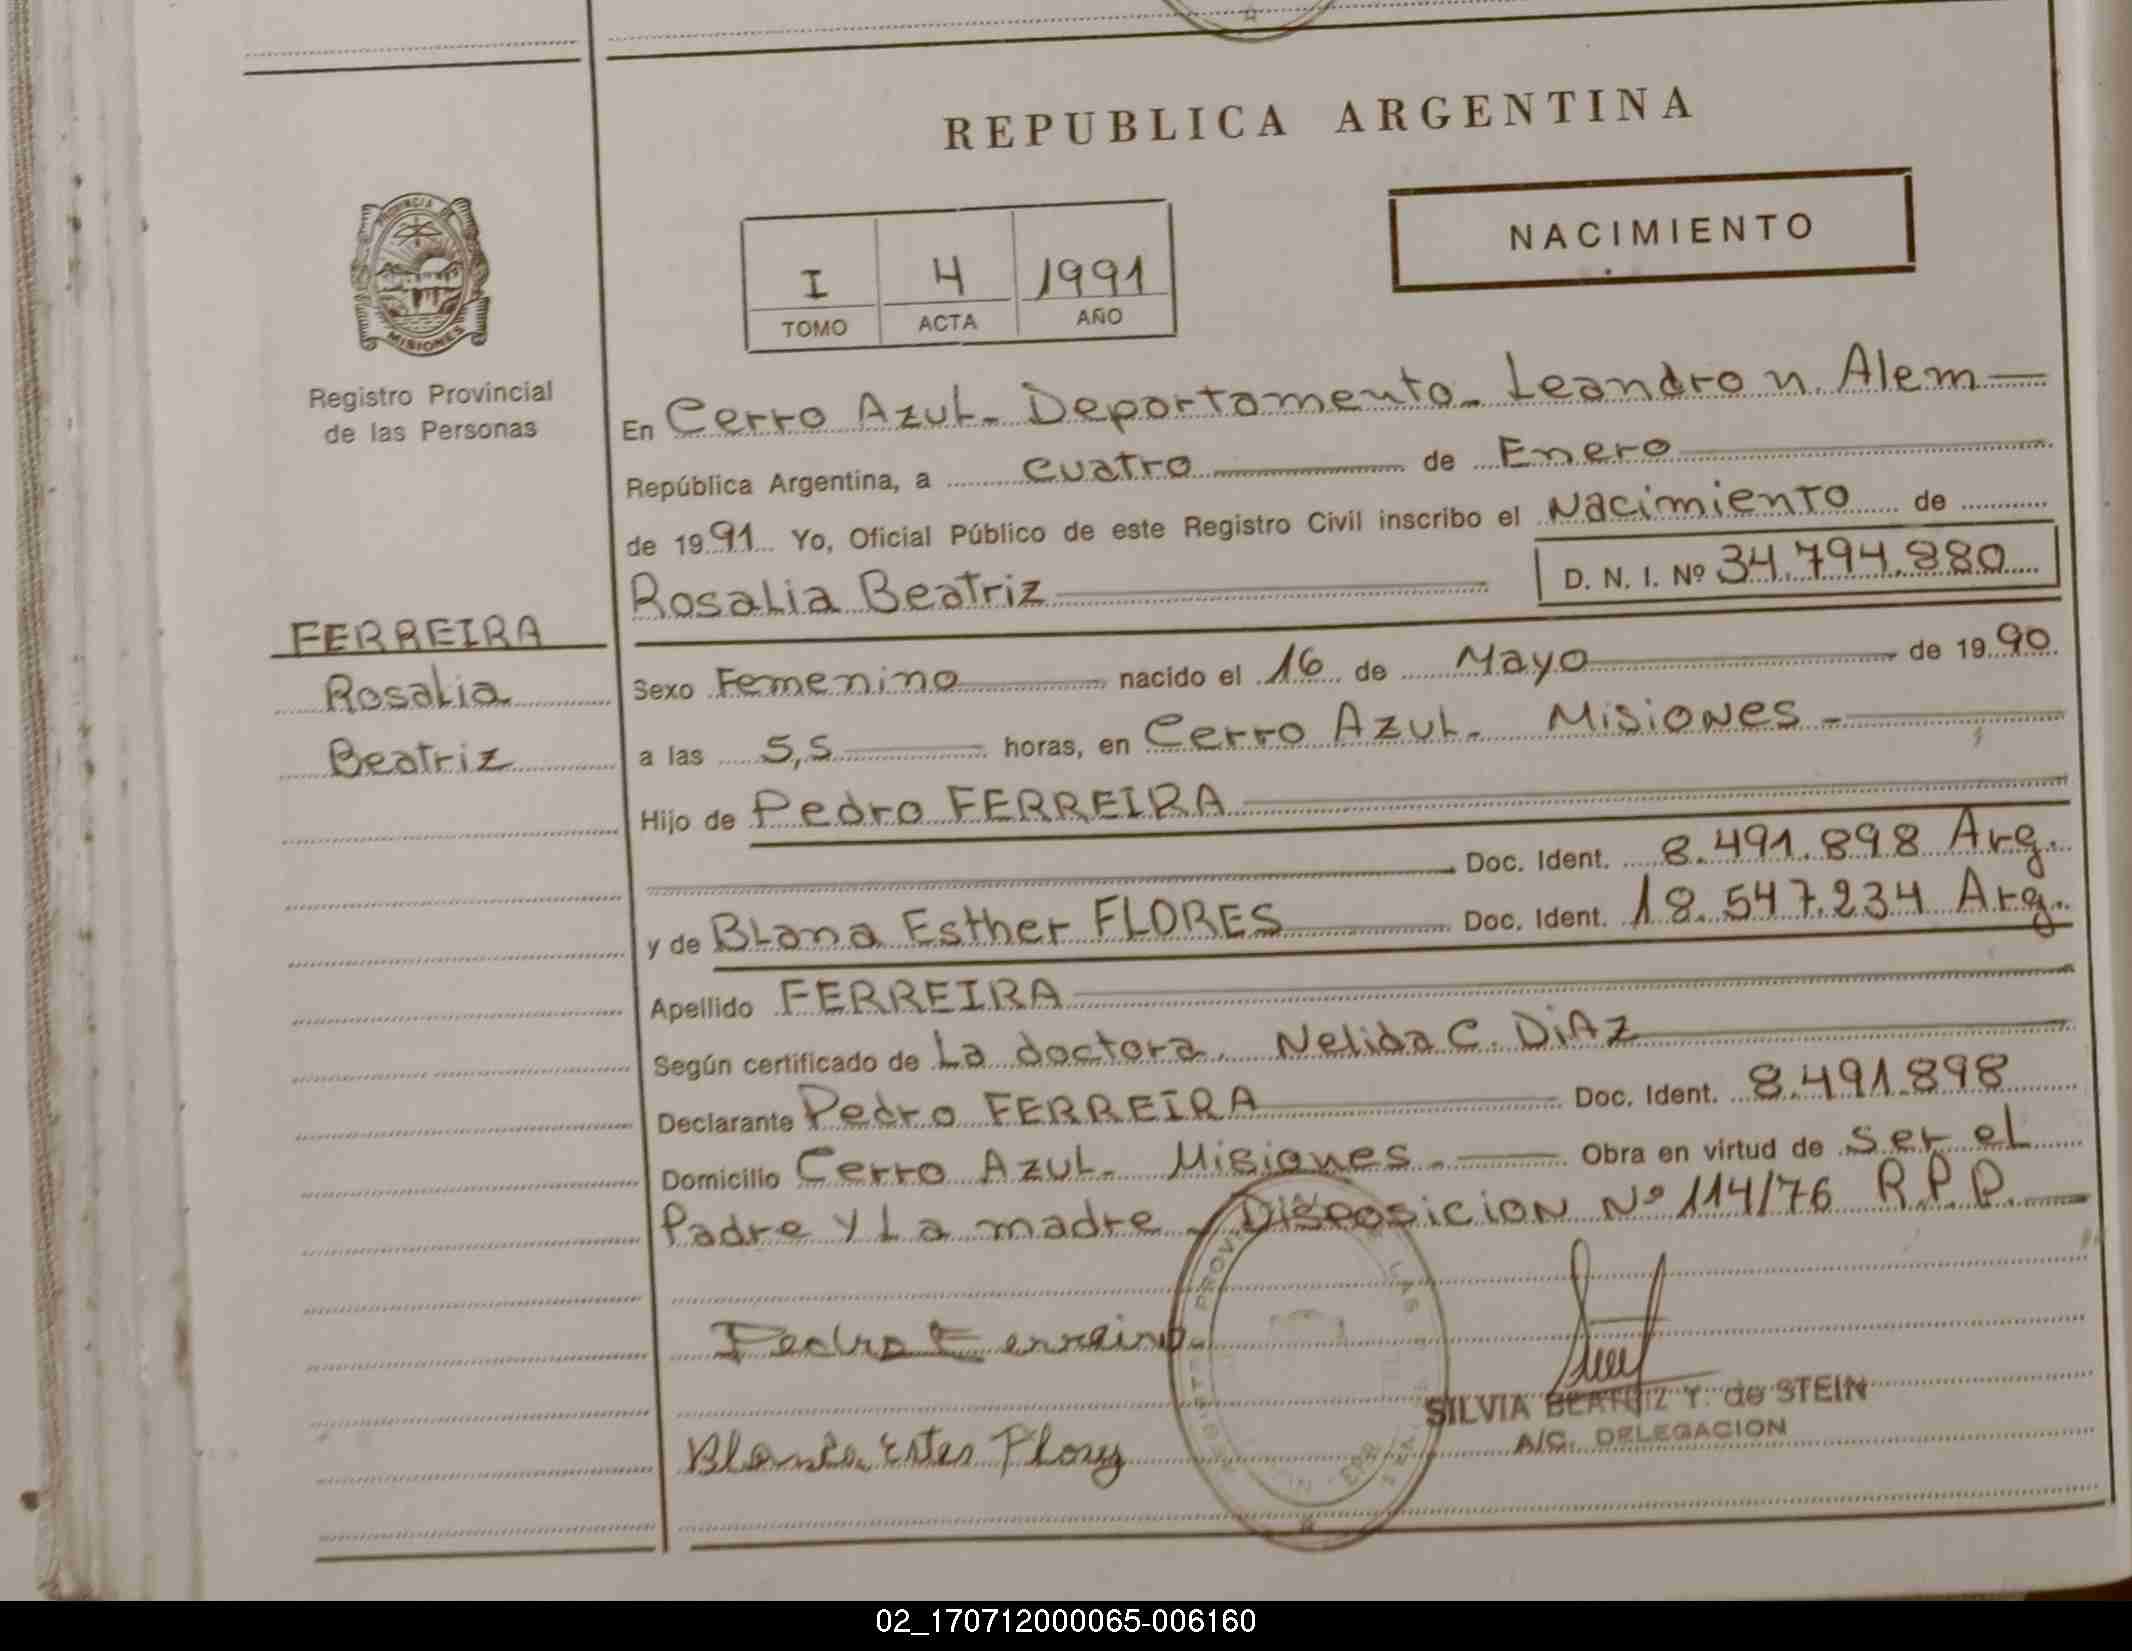 REPUBLICA ARGENTINA
NACIMIENTO
I 4 1991
TOMO ACTA AÑO
PROVINCIA DE MISIONES
Registro Provincial
de las Personas
En Cerro Azul- Departamento- Leandro N. Alem
República Argentina, a cuatro de Enero
de 1991 Yo, Oficial Público de este Registro Civil inscribo el Nacimiento de
Rosalia Beatriz D. N. I. Nº 34.794.880
FERREIRA
Rosalia
Beatriz
Sexo Femenino nacido el 16 de Mayo de 1990.
a las 5,5 horas, en Cerro Azul- Misiones-
Hijo de Pedro FERREIRA
Doc. Ident. 8.491.898 Arg.
y de Blana Esther FLORES Doc. Ident. 18.547.234 Arg.
Apellido FERREIRA
Según certificado de La doctora. Nelida C. DiAZ
Declarante Pedro FERREIRA Doc. Ident. 8.491.898
Domicilio Cerro Azul- Misiones- Obra en virtud de ser el
Padre y La madre- Disposicion Nº 114/76 R.P.P.
Pedro Ferreira
Blanca Ester Flores
SILVIA BEATRIZ T. de STEIN
A/C. DELEGACION
02_170712000065-006160